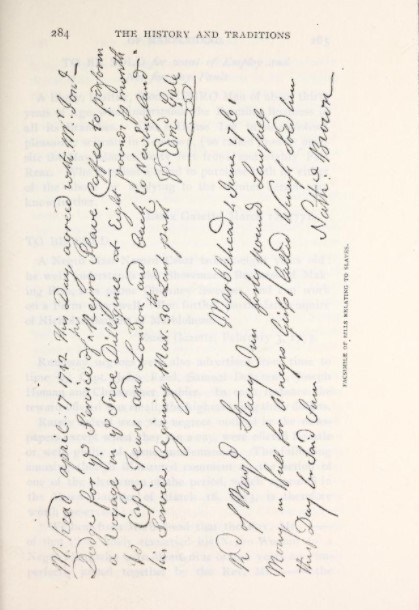 284
THE HISTORY AND TRADITIONS
M:head april 17 1742 this Day agreed with Mr. Jon.a
Dodge for ye Service of his Negro Slave Coffee to perform
a Voyage in ye Snoe Dilligince at Eight pounds pr month
to Cape Fears and London and back to New England
his Service begining Mar. 30 Last past Pr. Edmd. Gale
Recd of Mary Marblehead 4 June 1761
Money in full for A negro Girl Called Winah Sold him
this Day by said Inn Nathl. Brown
FACSIMILE OF BILLS RELATING TO SLAVES.